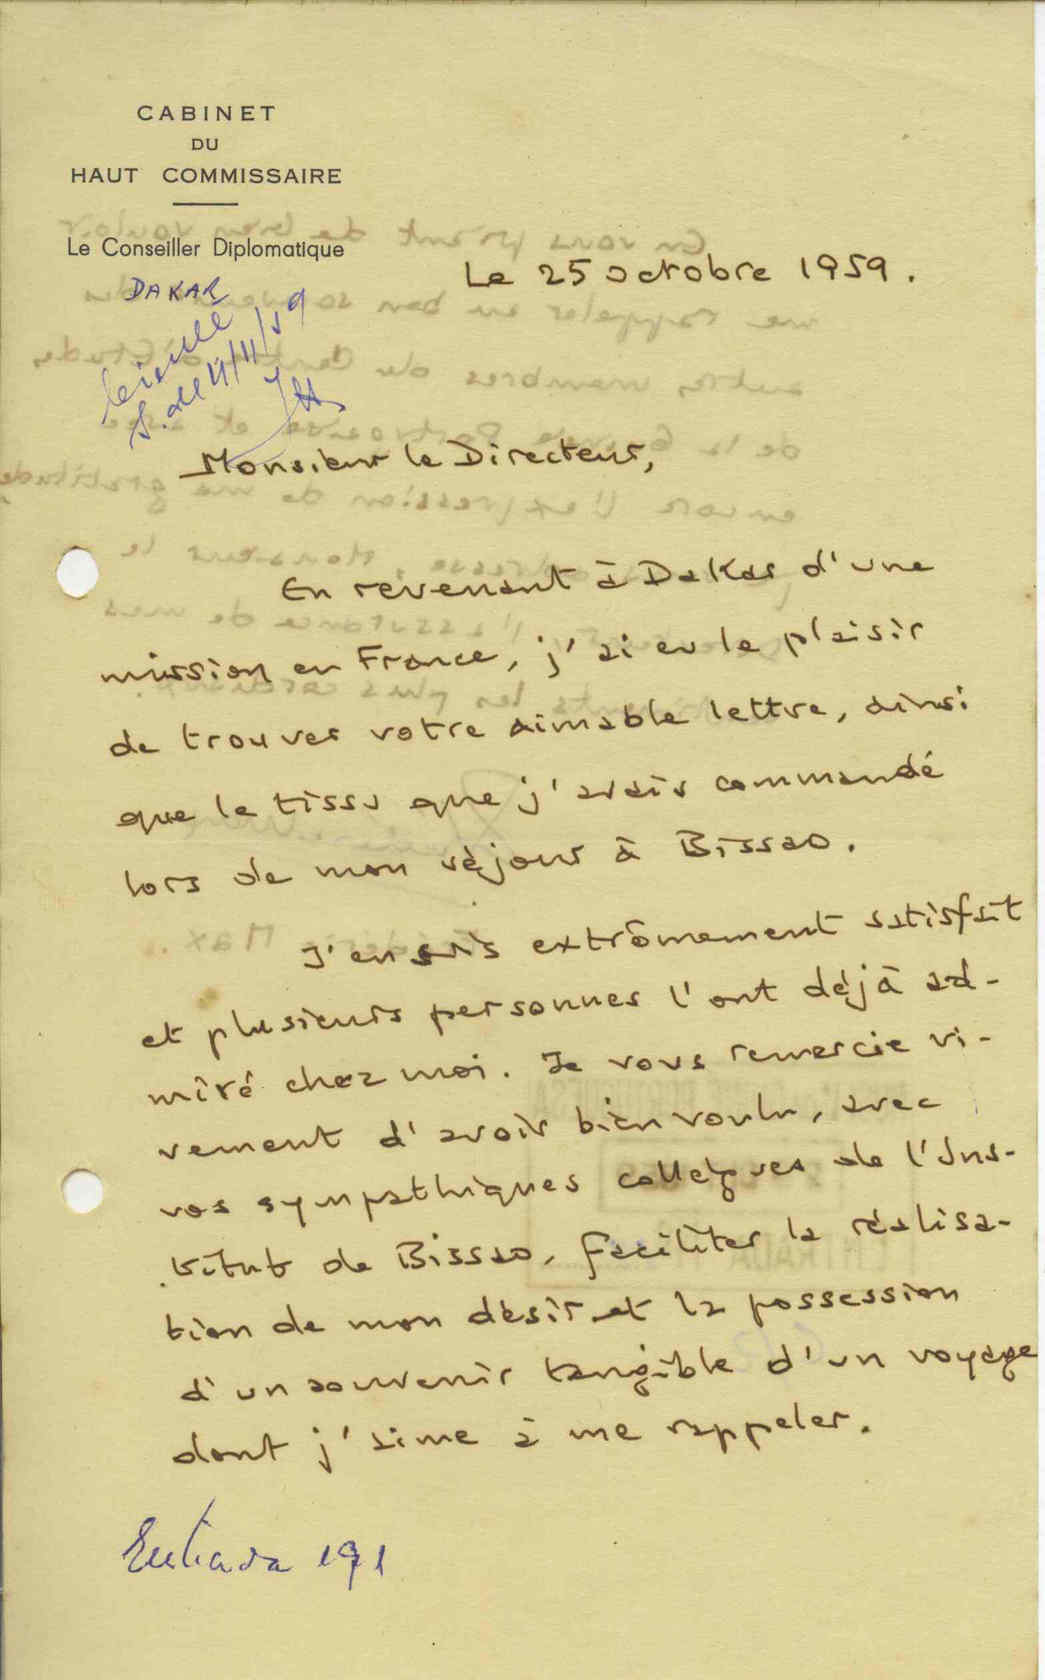 CABINET
DU
HAUT COMMISSAIRE
Le Conseiller Diplomatique
DAKAR
Le 25 octobre 1959.
11/11/59
Monsieur le Directeur,
En revenant à Dakar d'une
mission en France, j'ai eu le plaisir
de trouver votre aimable lettre, ainsi
que le tissu que j'avais commandé
lors de mon séjour à Bissao.
J'en suis extrêmement satisfait
et plusieurs personnes l'ont déjà ad-
miré chez moi. Je vous remercie vi-
vement d'avoir bien voulu, avec
vos sympathiques collègues de l'Ins-
titut de Bissao, faciliter la réalisa-
tion de mon désir et la possession
d'un souvenir tangible d'un voyage
dont j'aime à me rappeler.
Entrada 191